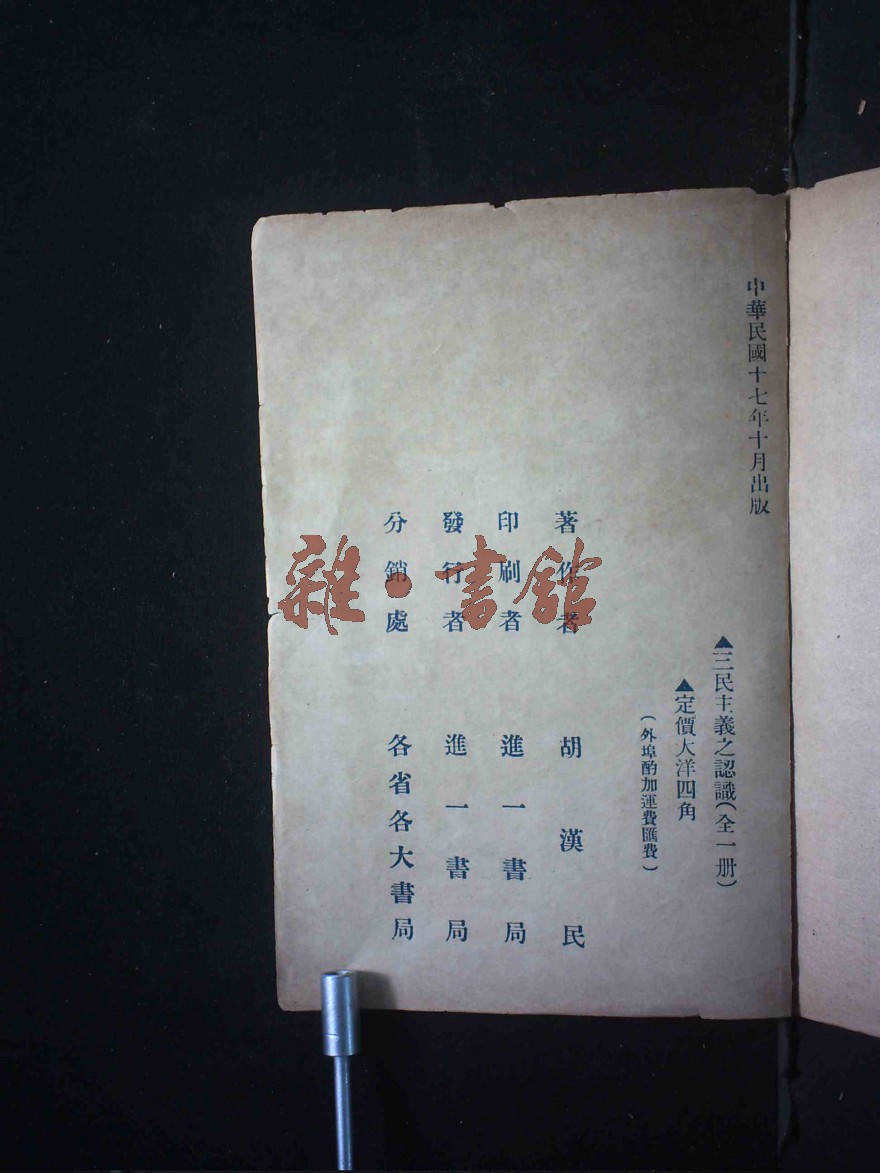 中華民國十七年十月出版
▲三民主義之認識(全一册)
▲定價大洋四角
(外埠酌加運費匯費)
著作者 胡漢民
印刷者 進一書局
發行者 進一書局
分銷處 各省各大書局
雜·書館